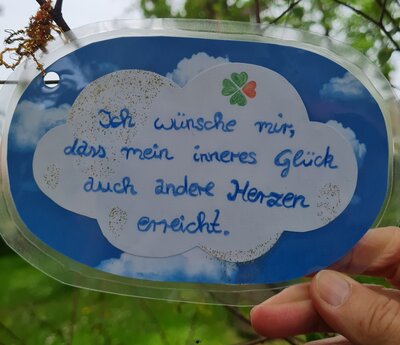 Ich wünsche mir,
dass mein inneres Glück
auch andere Herzen
erreicht.